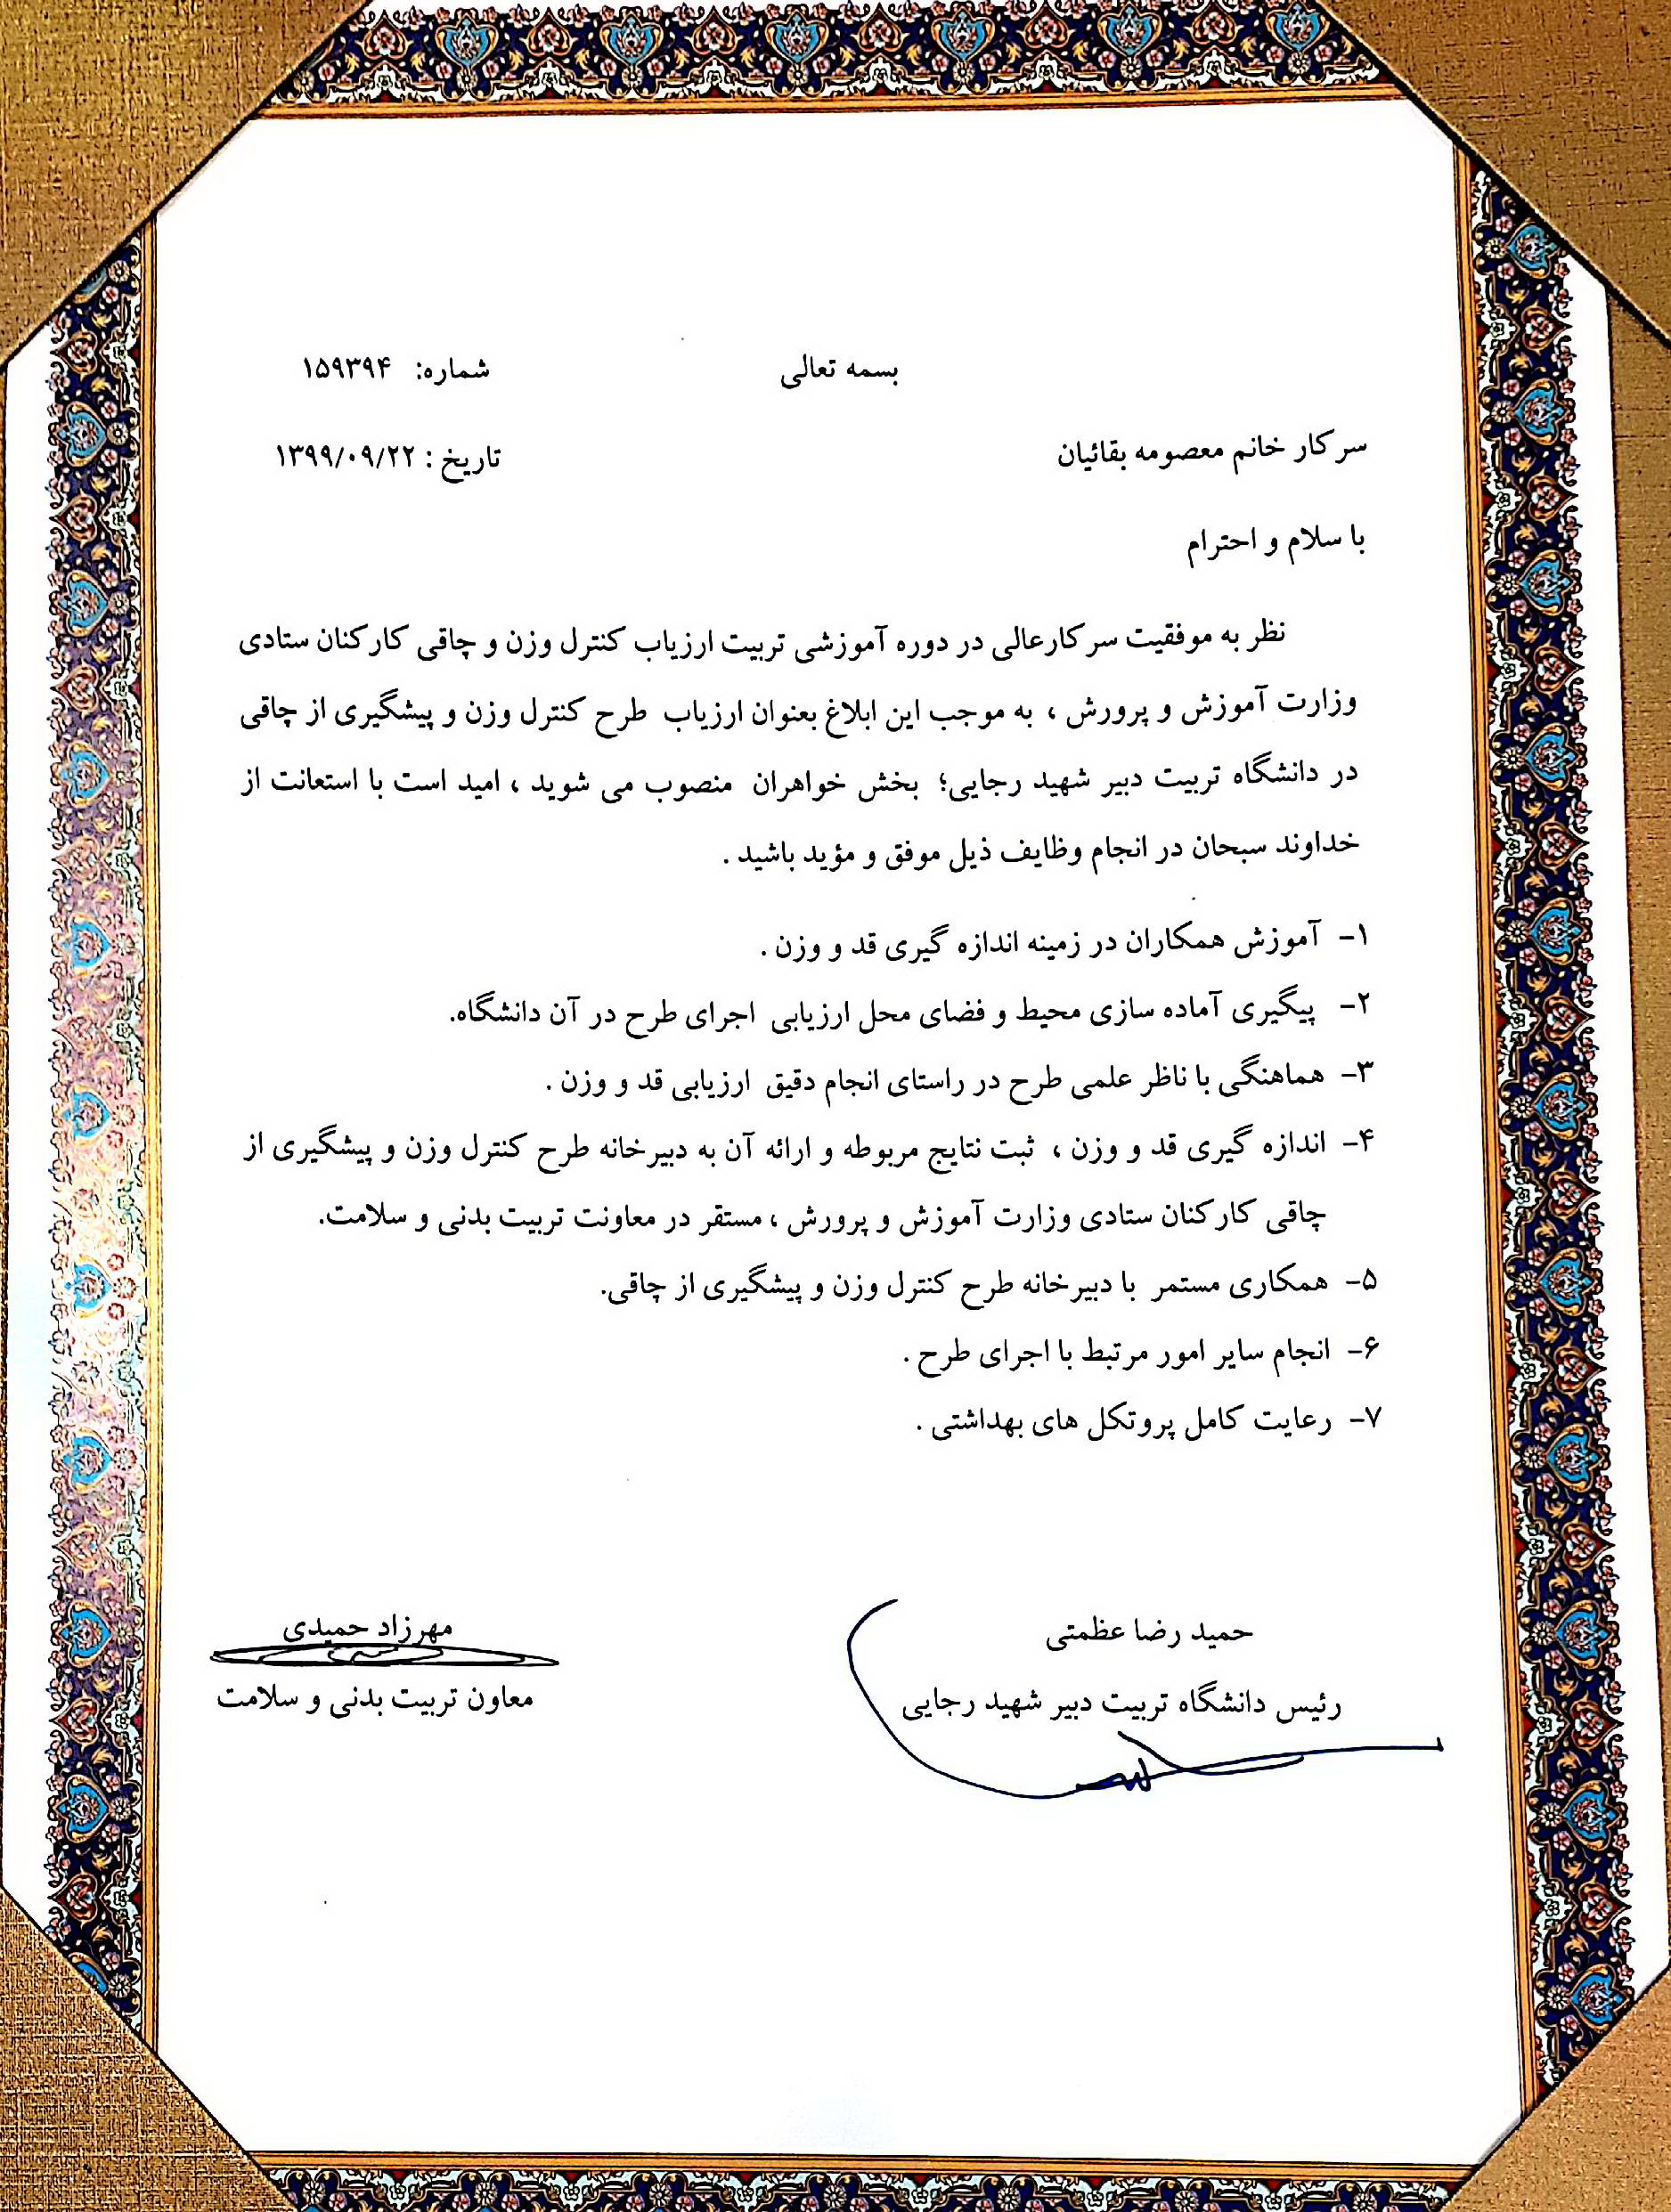 بسمه تعالی
شماره: ۱۵۹۳۹۴
سرکار خانم معصومه بقائیان
تاریخ : ۱۳۹۹/۰۹/۲۲
با سلام و احترام
نظر به موفقیت سرکارعالی در دوره آموزشی تربیت ارزیاب کنترل وزن و چاقی کارکنان ستادی
وزارت آموزش و پرورش ، به موجب این ابلاغ بعنوان ارزیاب طرح کنترل وزن و پیشگیری از چاقی
در دانشگاه تربیت دبیر شهید رجایی؛ بخش خواهران منصوب می شوید ، امید است با استعانت از
خداوند سبحان در انجام وظایف ذیل موفق و مؤید باشید .
۱- آموزش همکاران در زمینه اندازه گیری قد و وزن .
۲- پیگیری آماده سازی محیط و فضای محل ارزیابی اجرای طرح در آن دانشگاه.
۳- هماهنگی با ناظر علمی طرح در راستای انجام دقیق ارزیابی قد و وزن .
۴- اندازه گیری قد و وزن ، ثبت نتایج مربوطه و ارائه آن به دبیرخانه طرح کنترل وزن و پیشگیری از
چاقی کارکنان ستادی وزارت آموزش و پرورش ، مستقر در معاونت تربیت بدنی و سلامت.
۵- همکاری مستمر با دبیرخانه طرح کنترل وزن و پیشگیری از چاقی.
۶- انجام سایر امور مرتبط با اجرای طرح .
۷- رعایت کامل پروتکل های بهداشتی .
حمید رضا عظمتی
رئیس دانشگاه تربیت دبیر شهید رجایی
مهرزاد حمیدی
معاون تربیت بدنی و سلامت